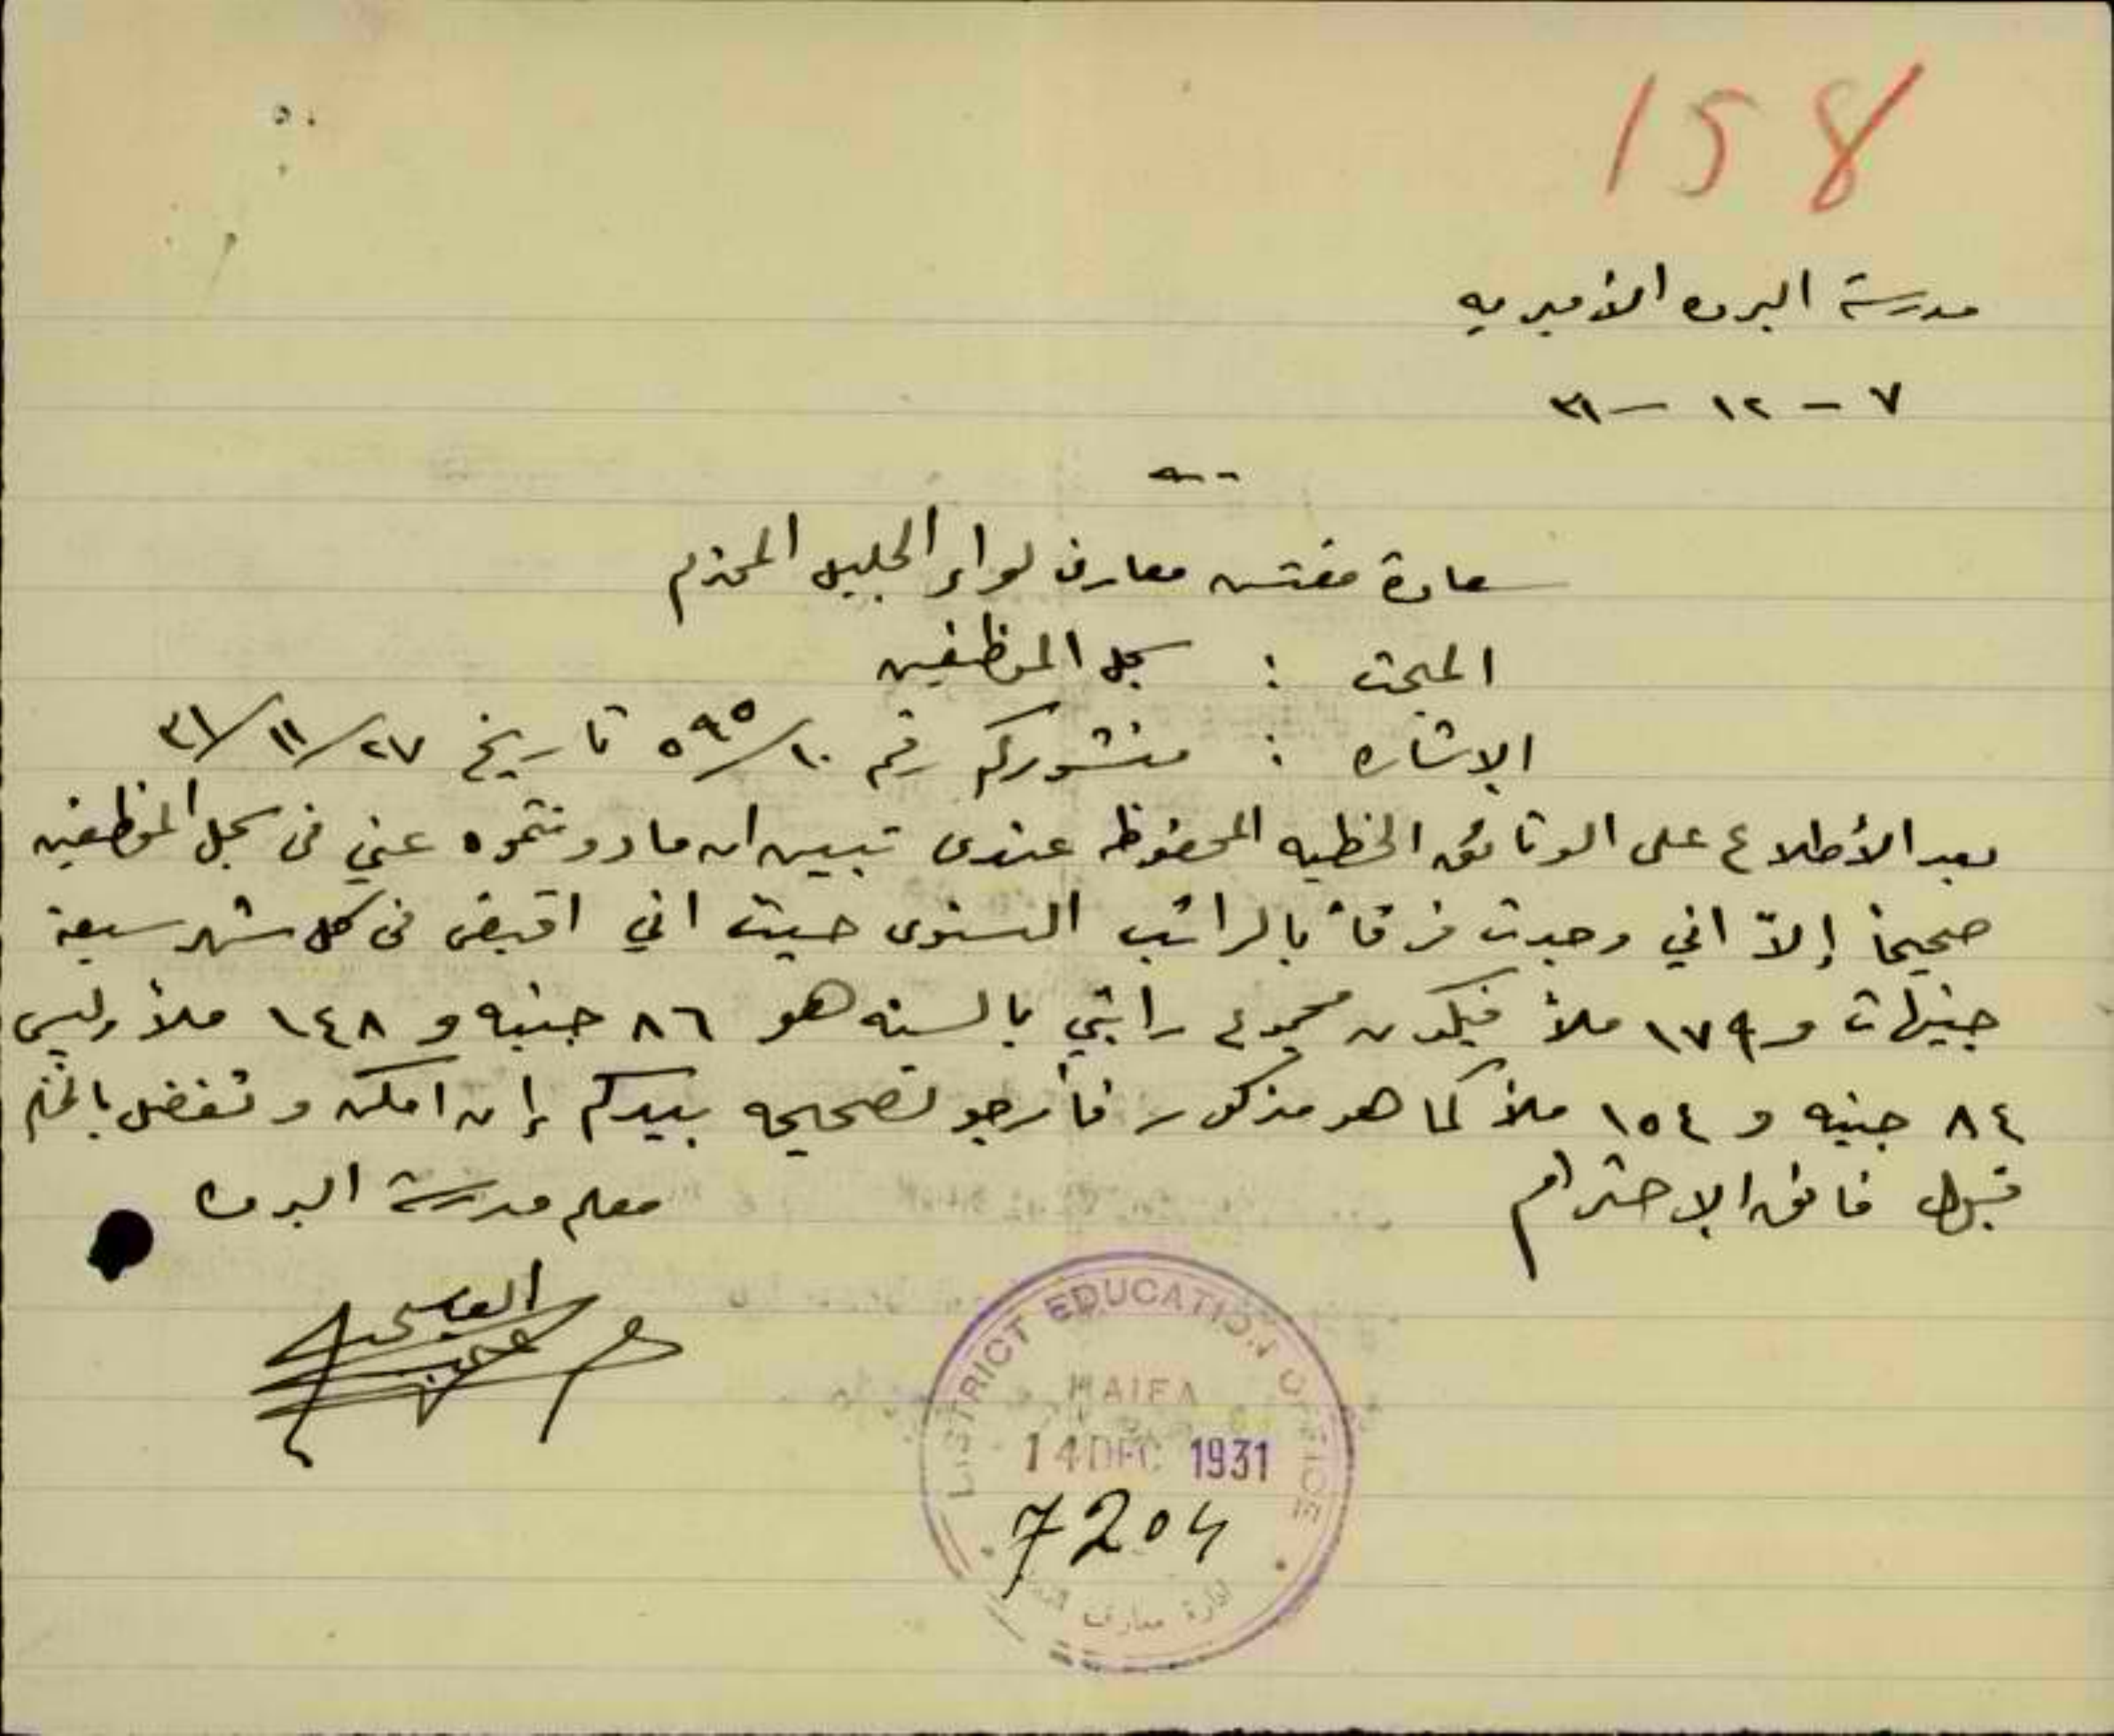 158
مدرسة البروه الأميريه
٧ - ١٢ - ٣١
سعادة مفتش معارف لواء الجليل المحترم
المبحث : سجل الموظفين
الإشاره : منشوركم رقم ١٠/٥٩٥ تاريخ ٢٧/١١/٣١
بعد الأطلاع على الوثائق الخطيه المحفوظه عندى تبيين ان ما دونتموه عني فى سجل الموظفين
صحيحاً إلاّ اني وجدت فرقاً بالراتب السنوى حيث اني اقبض فى كل شهر سبعة
جنيهات و ١٧٩ ملاً فيكون مجموع راتبي بالسنه هو ٨٦ جنيه و ١٤٨ ملاً وليس
٨٤ جنيه و ١٥٤ ملاً كما هو مذكور فأرجو تصحيحه بيدكم إن امكن وتفضل
قبول فائق الإحترام
معلم مدرسة البروه
DISTRICT EDUCATION OFFICE
HAIFA
14 DEC 1931
7204
ادارة معارف